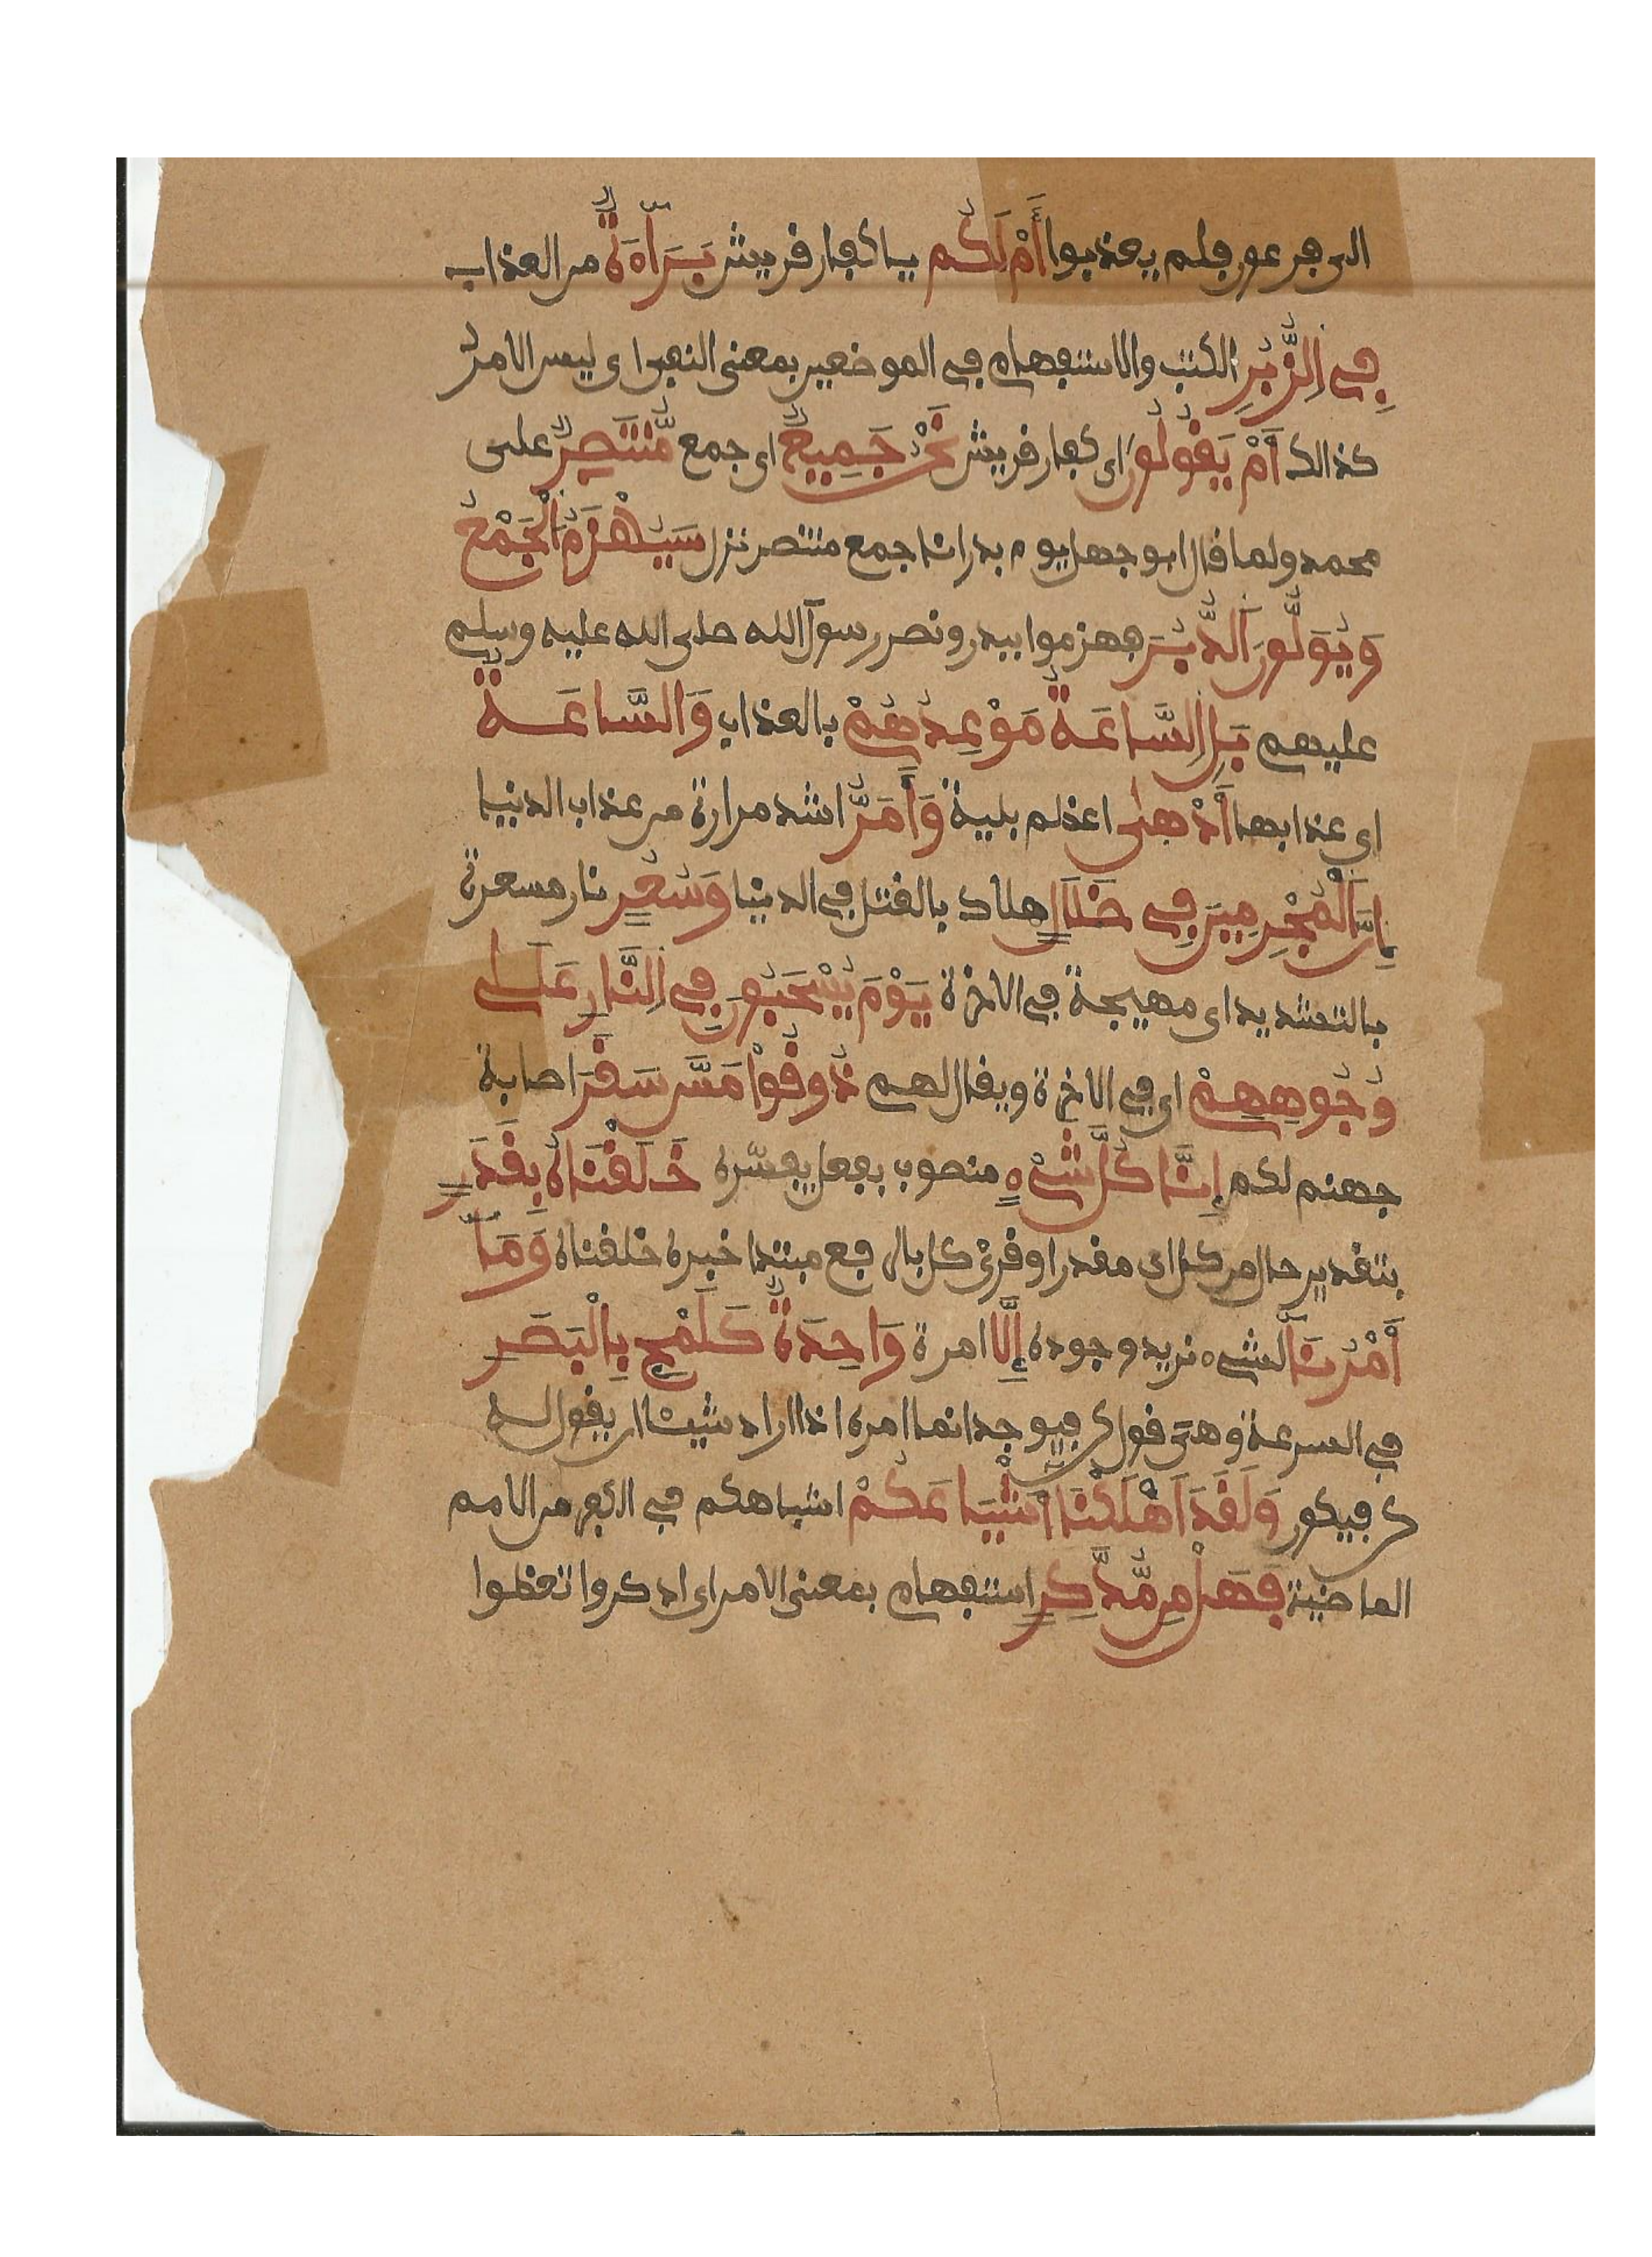 الى فرعون فلم يعذبوا أَمْ لَكُم يا كفار قريش بَرَآءَةٌ من العذاب
فِي اِلزُّبُرِ الكتب والاستفهام في الموضعين بمعنى النفي اي ليس الامر
كذالك أَمْ يَقُولُونَ اي كفار قريش نَحْنُ جَمِيعٌ اي جمع مُّنتَصِرٌ على
محمد ولما قال ابو جهل يوم بدر انا جمع منتصر نزل سَيُهْزَمُ اَلْجَمْعُ
وَيُوَلُّونَ اَلدُّبُرَ فهزموا ببدر ونصر رسول الله صلى الله عليه وسلم
عليهم بَلِ اِلسَّاعَةُ مَوْعِدُهُمْ بالعذاب وَالسَّاعَةُ
اي عذابها أَدْهَىٰ اعظم بلية وَأَمَرُّ اشد مرارة من عذاب الدنيا
إِنَّ اَلْمُجْرِمِينَ فِي ضَلَالٍ هلاك بالقتل في الدنيا وَسُعُرٍ نار مسعرة
بالتشديد اي مهيجة في الاخرة يَوْمَ يُسْحَبُونَ فِي اِلنَّارِ عَلَىٰ
وُجُوهِهِمْ اي في الاخرة ويقال لهم ذُوقُواْ مَسَّ سَقَرَ اصابة
جهنم لكم إِنَّا كُلَّ شَيْءٍ منصوب بفعل يفسره خَلَقْنَاهُ بِقَدَرٍ
بتقدير حال من كل اي مقدرا وقرئ كل بالرفع مبتدا خبره خلقناه وَمَا
أَمْرُنَا لشيء نريد وجوده إِلَّا امرة وَاحِدَةٌ كَلَمْحٍ بِالْبَصَرِ
في السرعة وهي قول كن فيوجد انما امره اذا اراد شيئا ان يقول له
كن فيكون وَلَقَدَ اَهْلَكْنَا أَشْيَاعَكُمْ اشباهكم في الكفر من الامم
الماضية فَهَلْ مِن مُّدَّكِرٍ استفهام بمعنى الامر اي ادكروا تعظوا